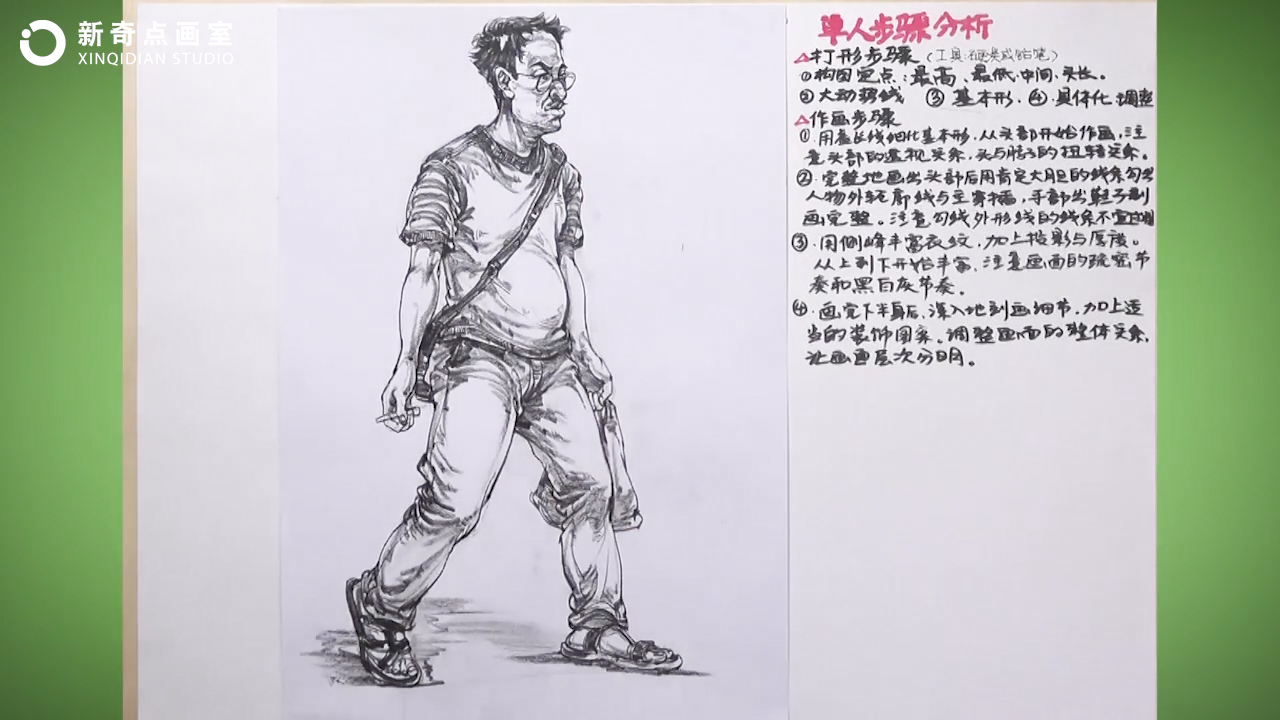 新奇点画室
XINQIDIAN STUDIO
单人步骤分析
△打形步骤(工具:硬炭或铅笔)
①构图定点:最高、最低、中间、头长。
②大动势线 ③基本形.④.具体化、调整
△作画步骤
①.用直长线细化基本形,从头部开始作画,注
意头部的透视关系,头与脖子的扭转关系。
②.完整地画出头部后用肯定大胆的线条勾出
人物外轮廓线与主要穿插,手部出鞋子刻
画完整。注意勾线外形线的线条不宜
③.用侧峰丰富衣纹,加上投影与厚度。
从上到下开始丰富、注意画面的疏密节
奏和黑白灰节奏。
④.画完下半身后、深入地刻画细节,加上适
当的装饰图案。调整画面的整体关系,
让画面层次分明。